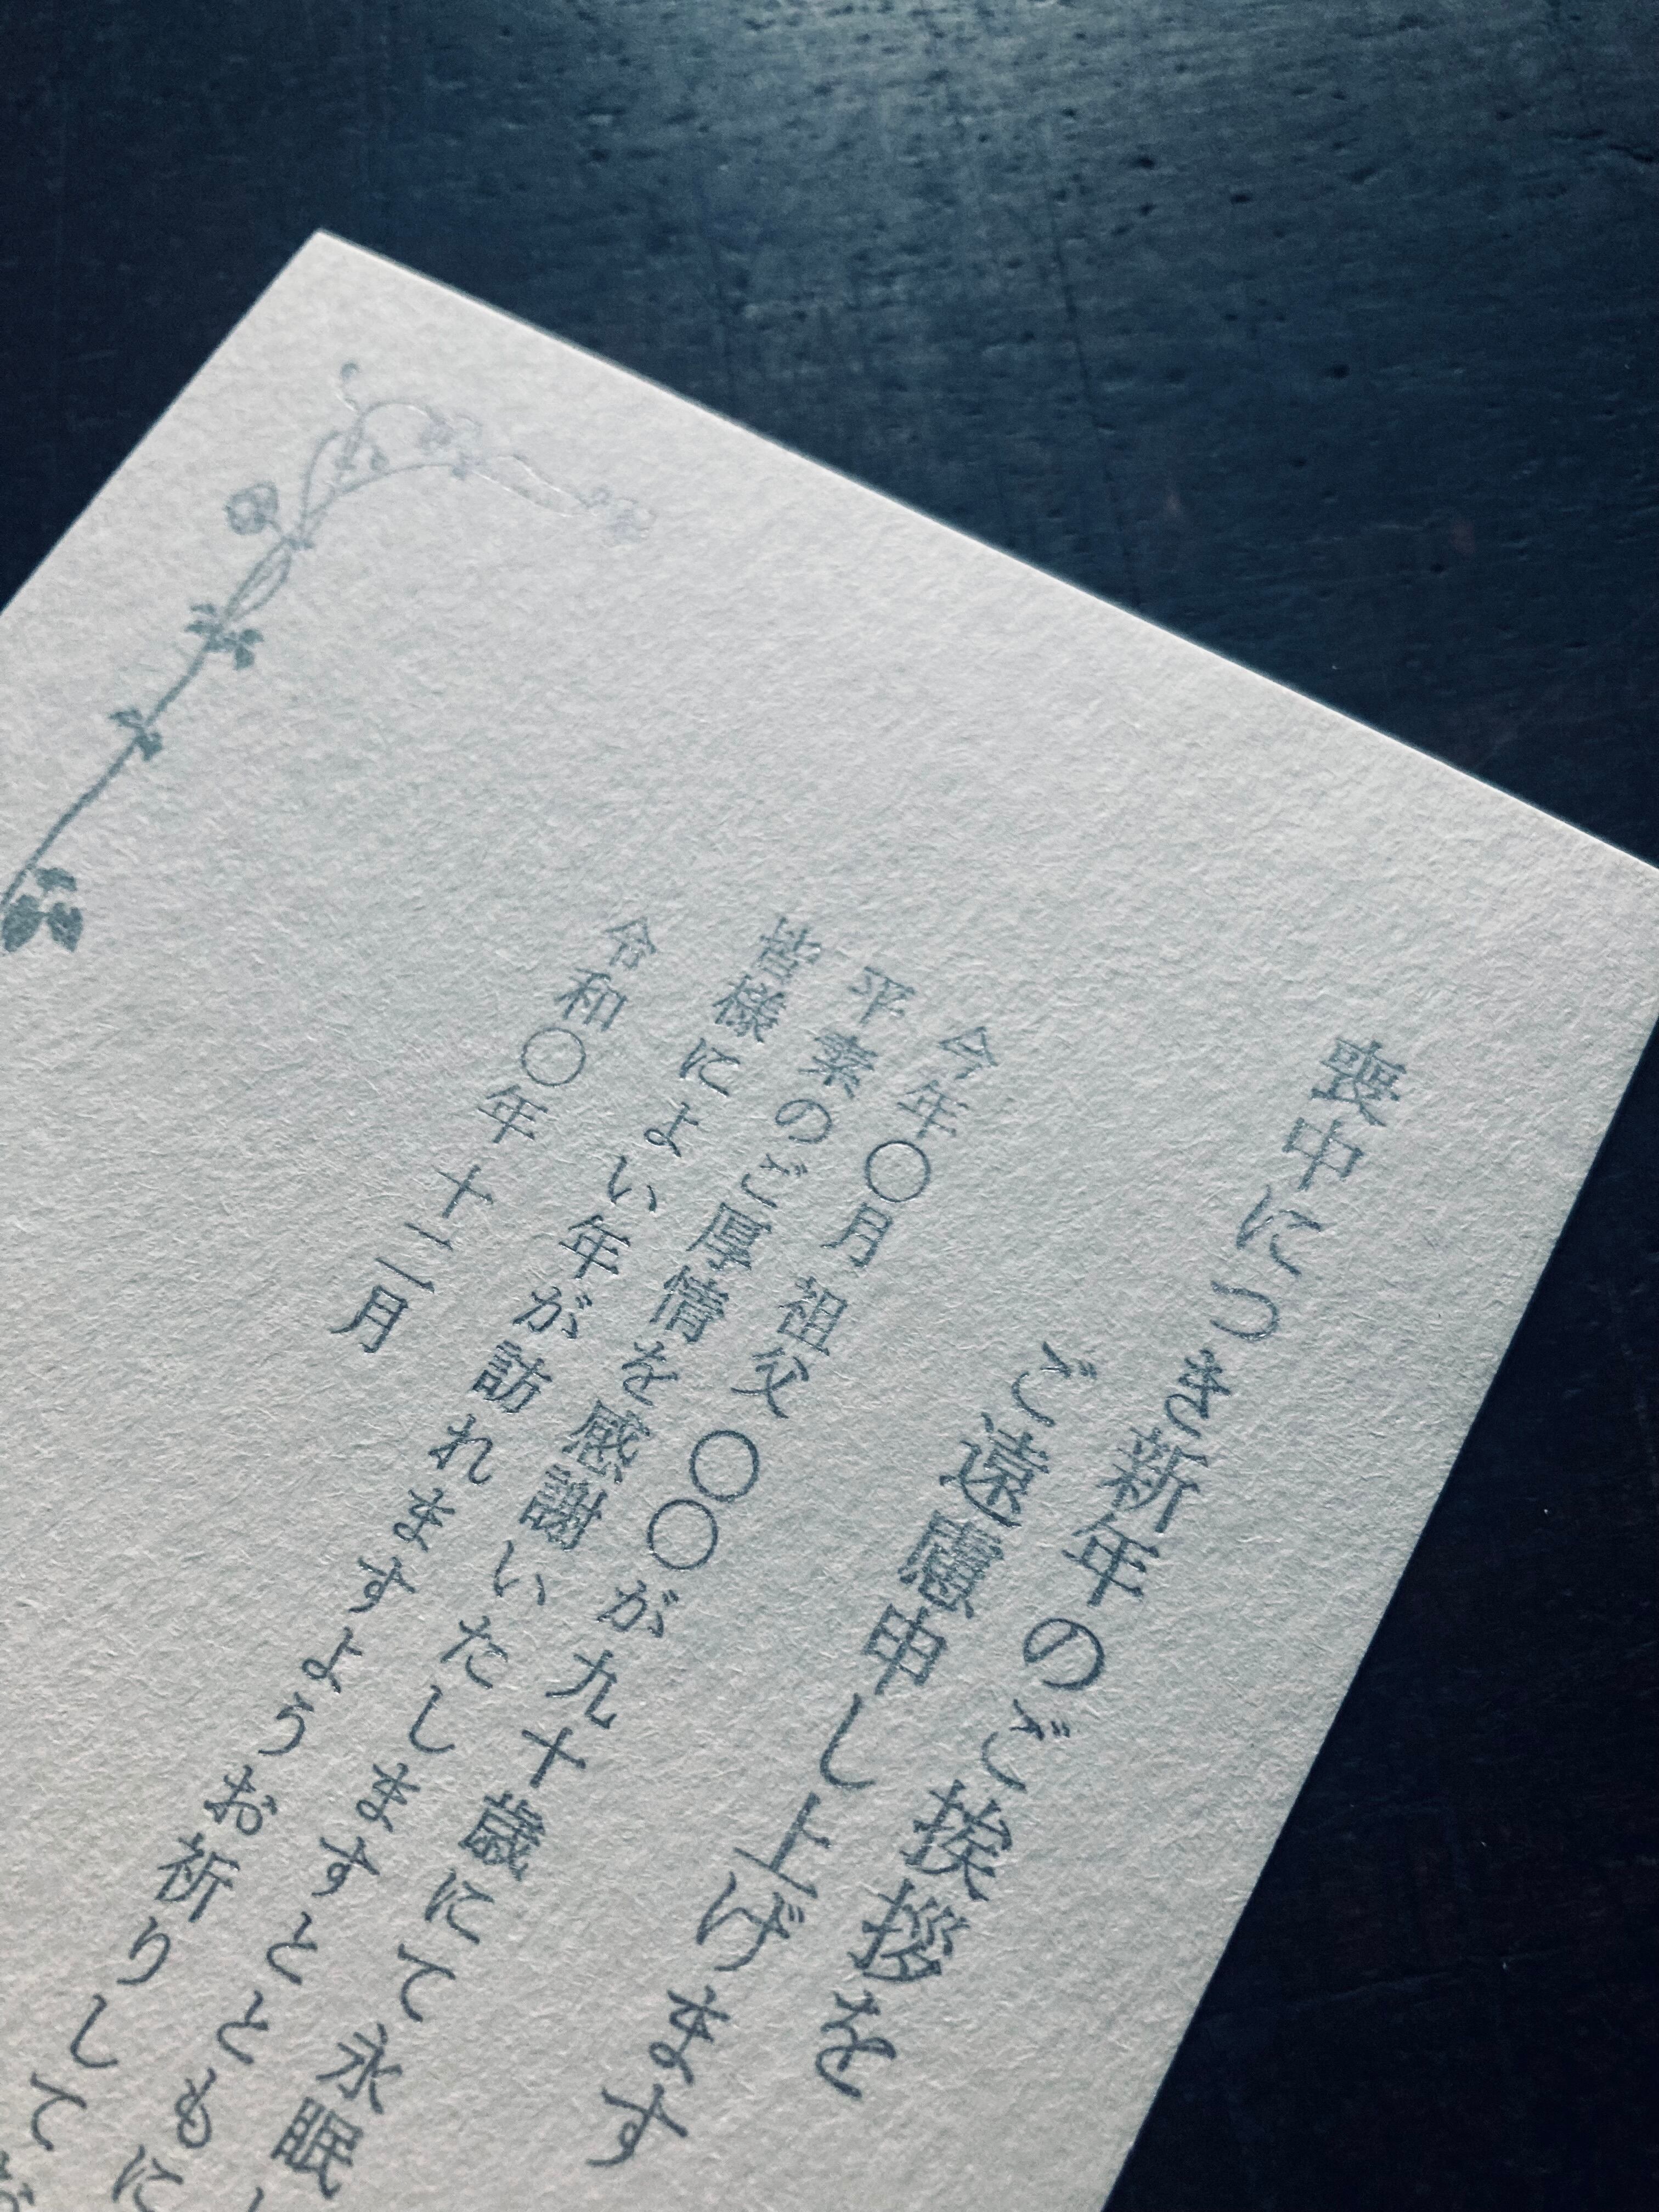 喪中につき新年のご挨拶を
ご遠慮申し上げます
今年〇月 祖父 〇〇が九十歳にて永眠
平素のご厚情を感謝いたしますとともに
皆様によい年が訪れますようお祈りして
令和〇年 十二月